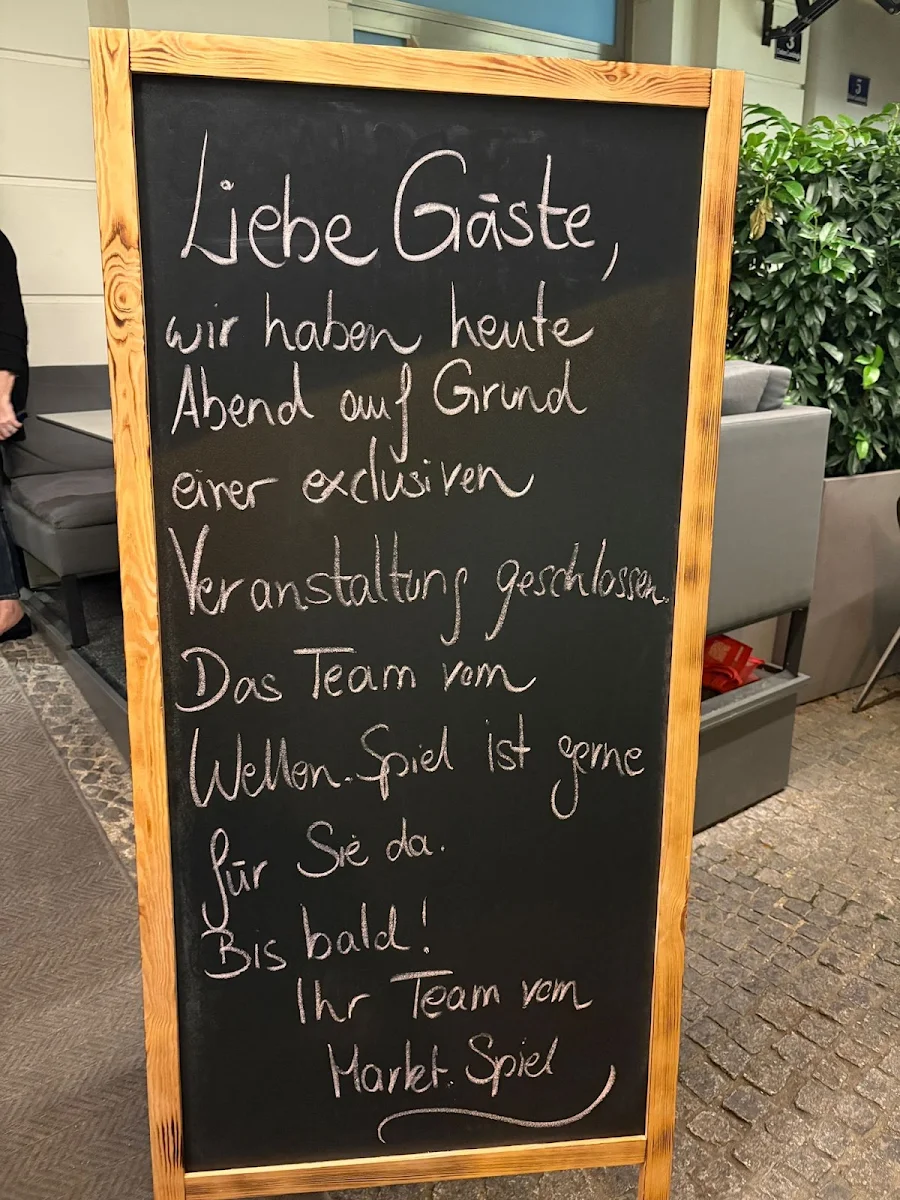 Liebe Gäste,
wir haben heute
Abend auf Grund
einer exclusiven
Veranstaltung geschlossen.
Das Team vom
Wellen.Spiel ist gerne
für Sie da.
Bis bald!
Ihr Team vom
Markt.Spiel
3
5